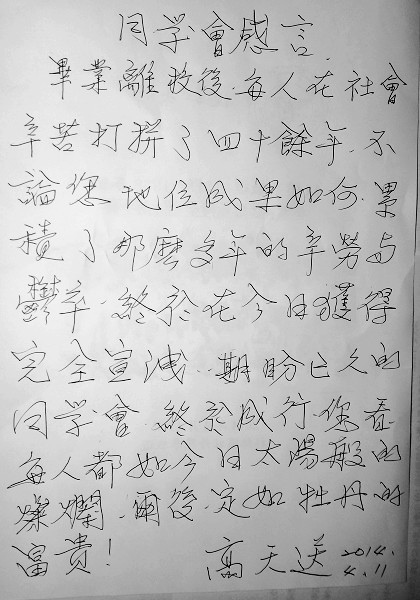 同学會感言
畢業離校後.每人在社會
辛苦打拼了四十餘年.不
論您地位成果如何.累
積了那麼多年的辛勞与
鬱卒.終於在今日獲得
完全宣洩.期盼已久的
同学會.終於成行.您看
每人都如今日太陽般的
燦爛.爾後.定如牡丹的
富貴!高天送2014.4.11